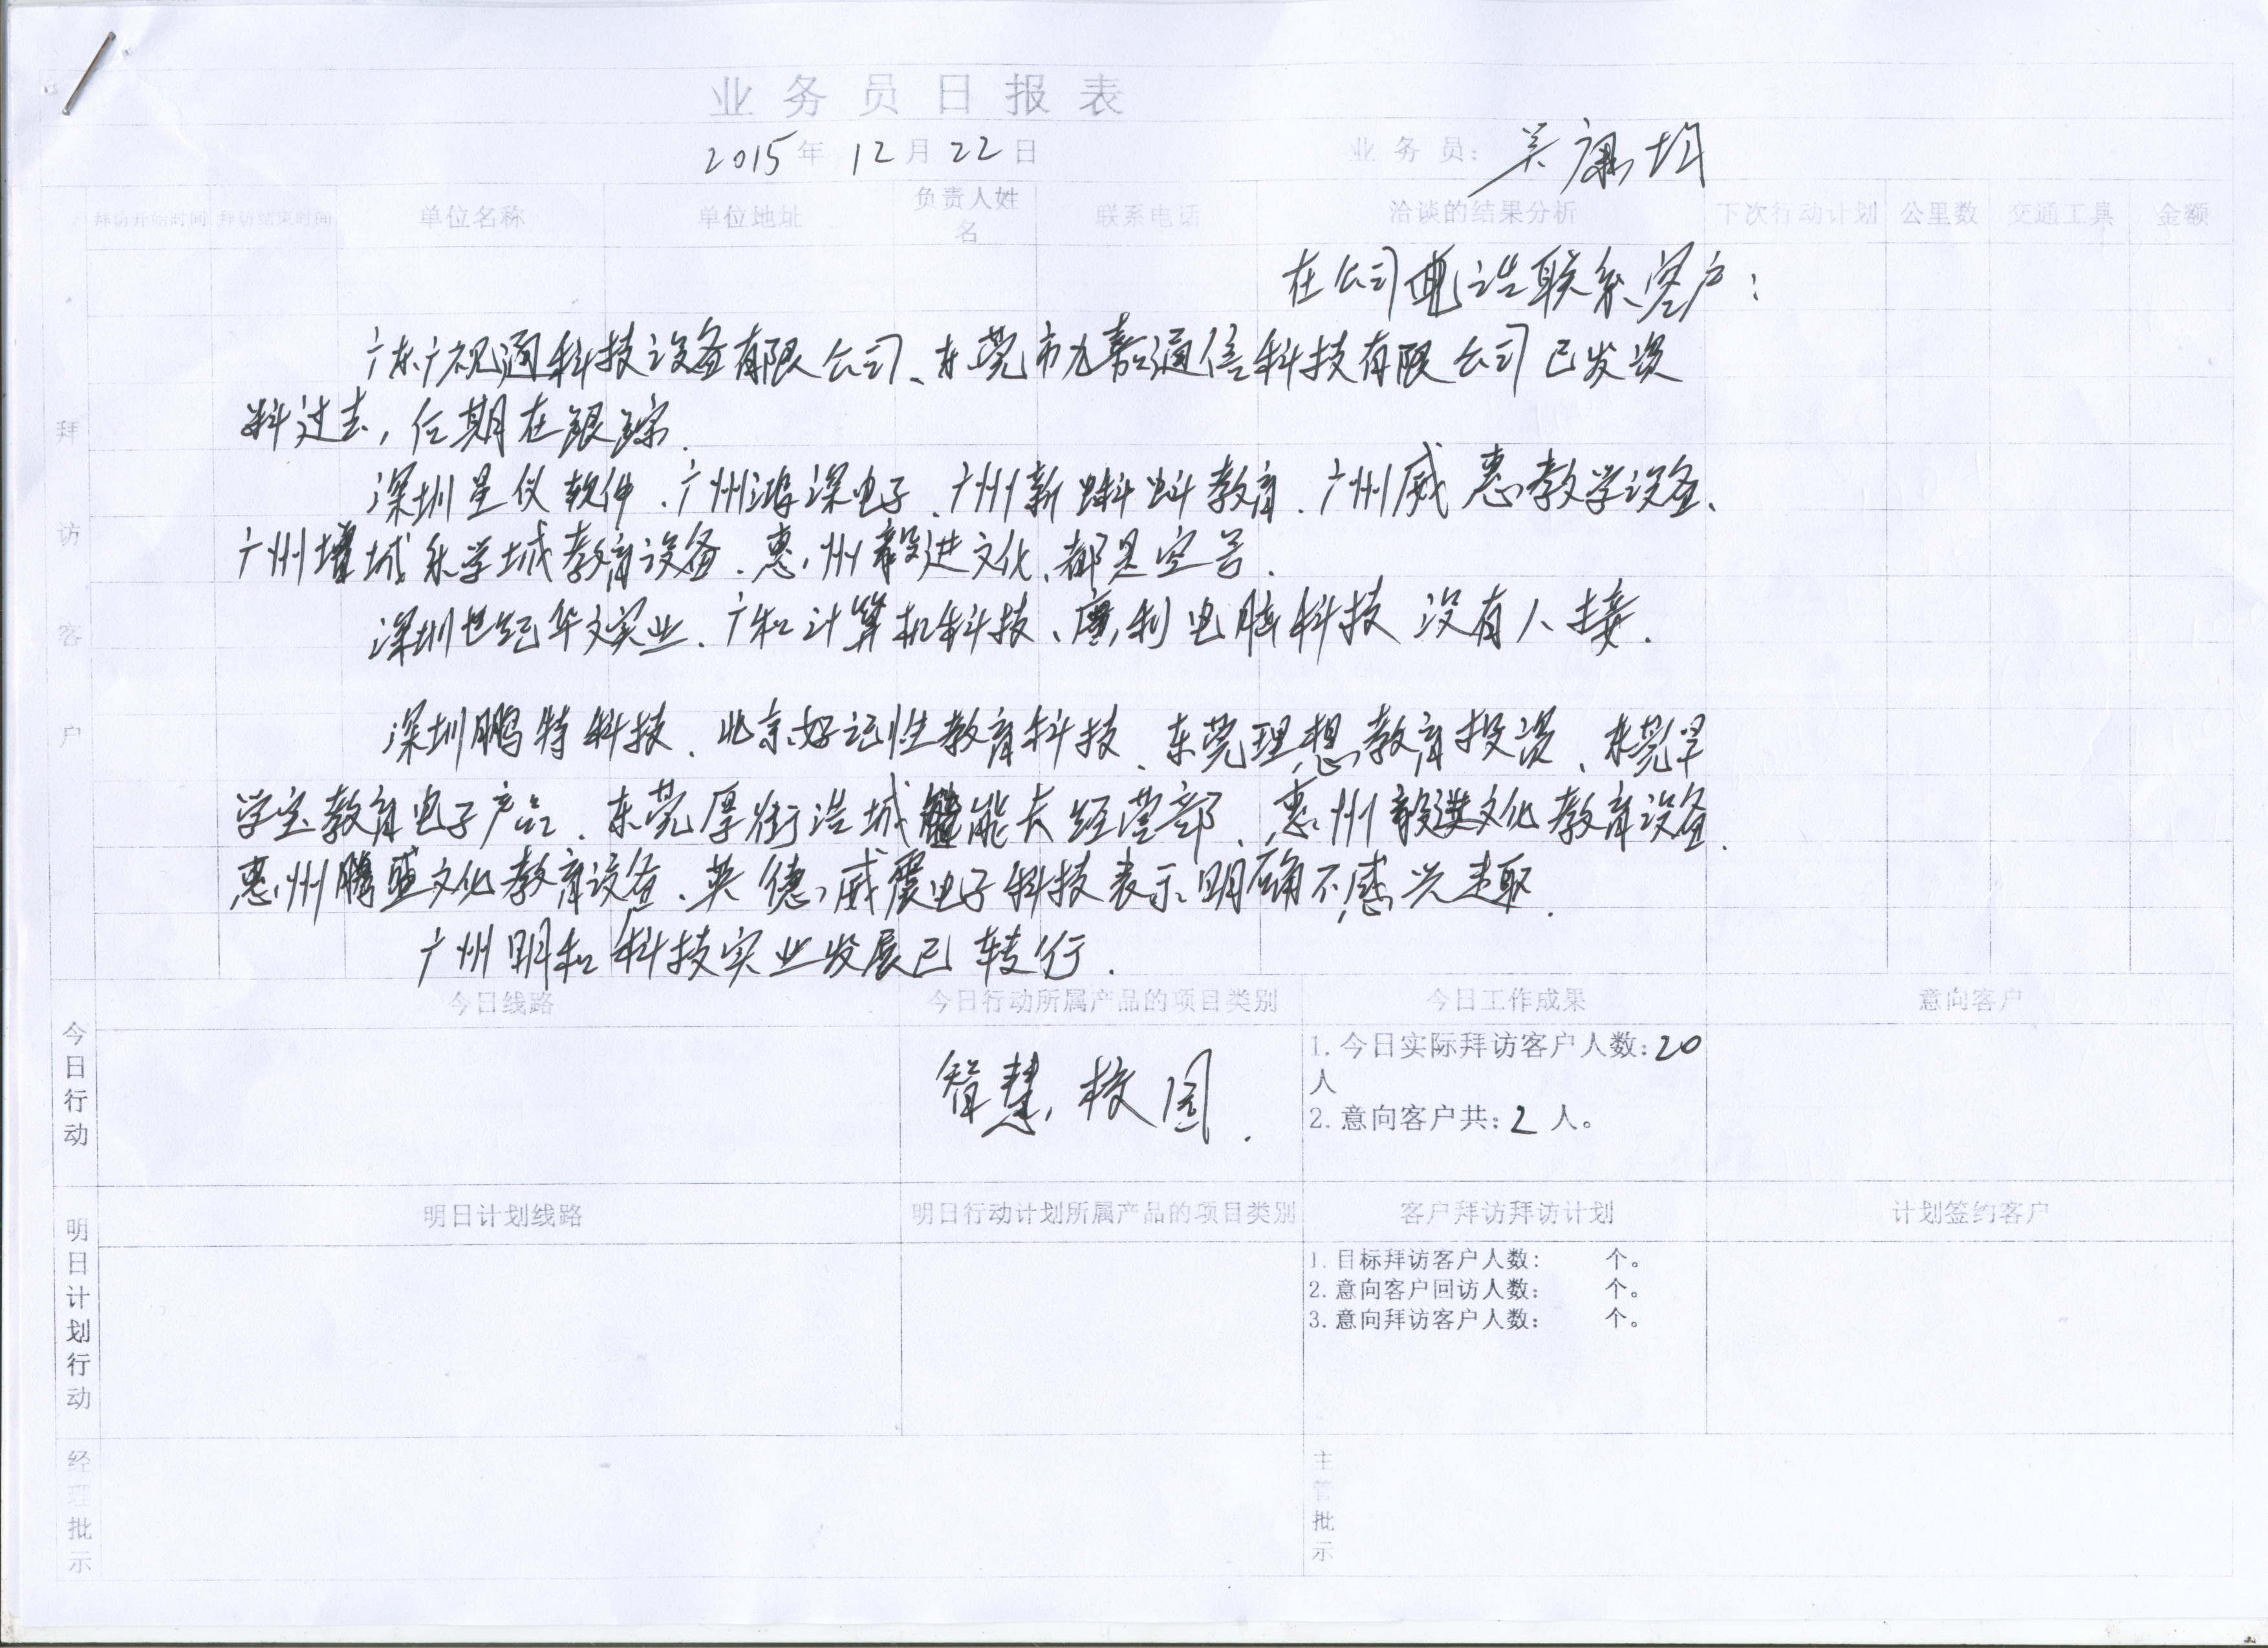 业务员日报表
2015年 12月22日 业务员：吴
拜访开始时间 拜访结束时间 单位名称 单位地址 负责人姓名 联系电话 洽谈的结果分析 下次行动计划 公里数 交通工具 金额
拜访客户
在公司电话联系客户：
广东广视通科技设备有限公司、东莞市九嘉通信科技有限公司已发资
料过去，后期在跟踪.
深圳星仪软件、广州鸿深电子、广州新蝌蚪教育、广州威惠教学设备、
广州增城乐学城教育设备、惠州毅进文化、都是空号.
深圳世纪华文实业、广和计算机科技、康利电脑科技 没有人接.
深圳鹏特科技、北京好记性教育科技、东莞理想教育投资、东莞早
学宝教育电子产品、东莞厚街浩城能长经营部、惠州毅进文化教育设备、
惠州腾盛文化教育设备、英德威震电子科技表示明确不感兴趣.
广州明和科技实业发展已转行.
今日行动
今日线路 今日行动所属产品的项目类别 今日工作成果 意向客户
智慧校园.
1.今日实际拜访客户人数:20
人
2.意向客户共:2 人。
明日计划行动
明日计划线路 明日行动计划所属产品的项目类别 客户拜访拜访计划 计划签约客户
1.目标拜访客户人数: 个。
2.意向客户回访人数: 个。
3.意向拜访客户人数: 个。
经理批示
主管批示